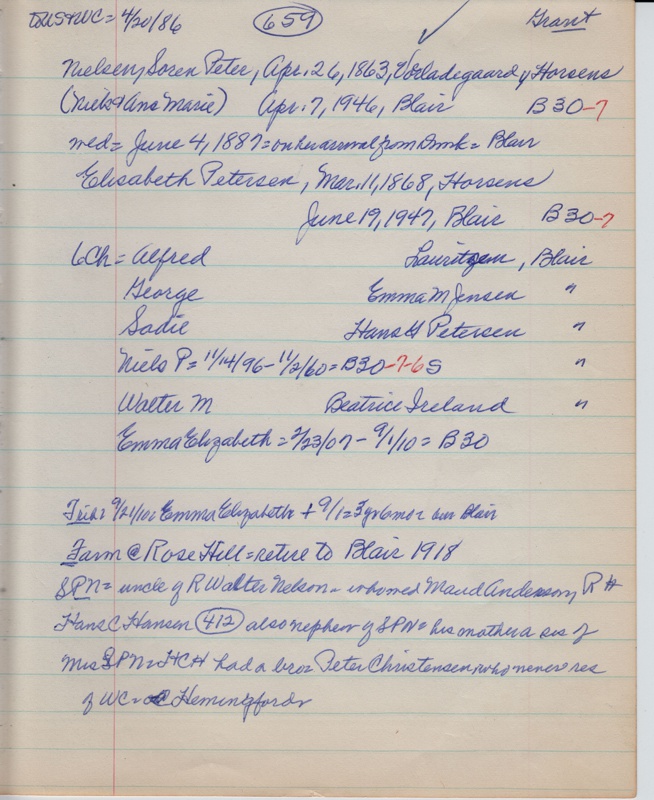 to US & WC = 4/20/86 659 Grant
Nielsen, Soren Peter, Apr. 26, 1863, Horsens
(Niels & Ana Marie) Apr. 7, 1946, Blair B30-7
wed = June 4, 1887 = on her arrival from Dmk = Blair
Elisabeth Petersen, Mar. 11, 1868, Horsens
June 19, 1947, Blair B30-7
6Ch = Alfred Lauritzen, Blair
George Emma M Jensen "
Sadie Hans H Petersen "
Niels P = 11/14/96 - 11/2/60 = B30-7-6S "
Walter M Beatrice Ireland "
Emma Elizabeth = 2/23/07 - 9/1/10 = B30
Trib: 9/21/10: Emma Elizabeth + 9/1 = 3 yr 6 mo = Blair
Farm @ Rose Hill = retire to Blair 1918
SPN = uncle of R Walter Nelson - who wed Maud Anderson, RH
Hans C Hansen 412 also nephew of SPN = his mother a sis of
Mrs SPN = HCH had a bro = Peter Christensen, who never res
of WC = Hemingford